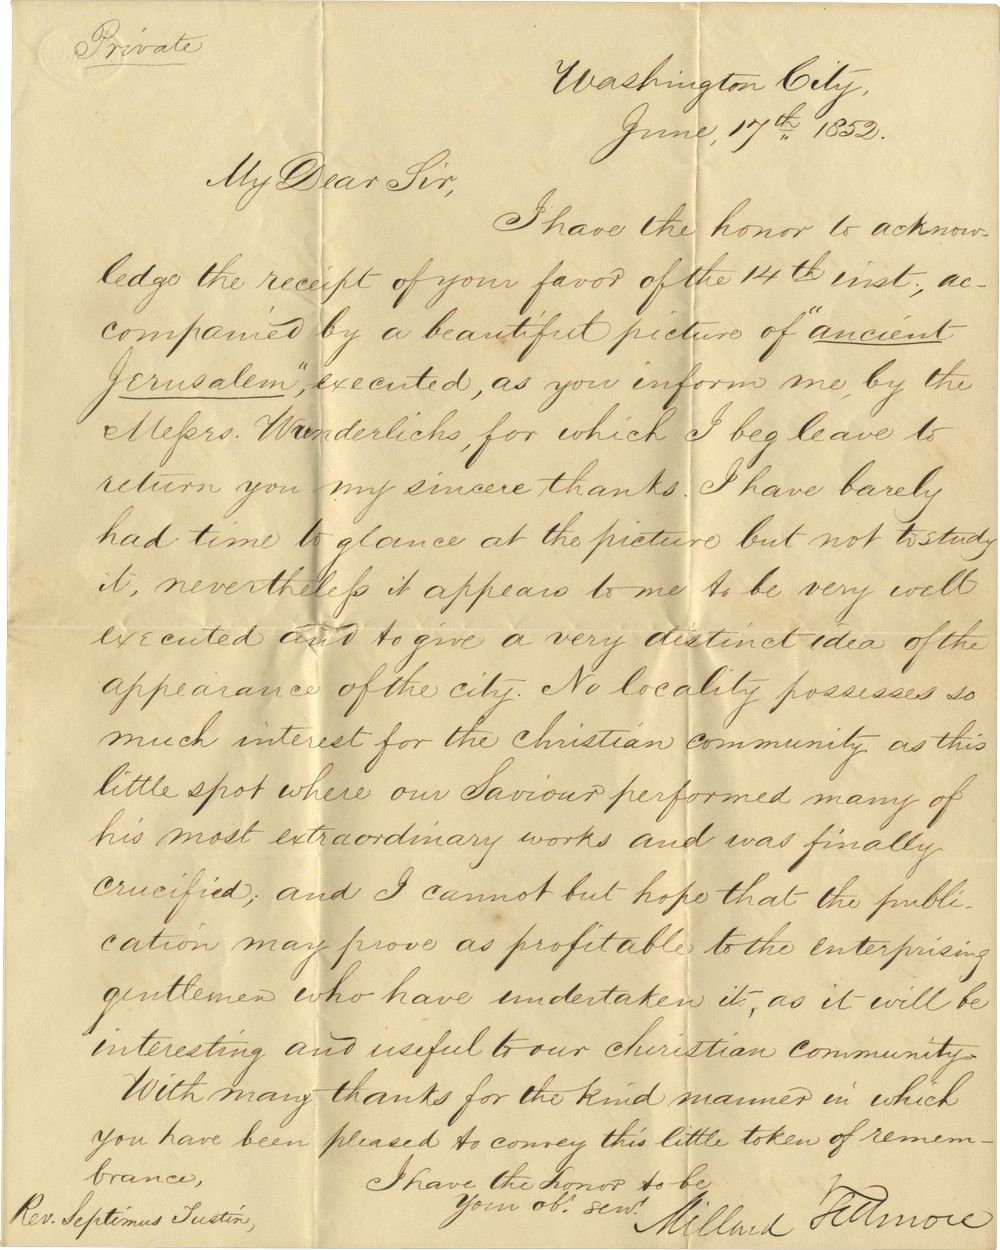 Private
Washington City,
June, 17th 1852.
My Dear Sir,
I have the honor to acknow-
ledge the receipt of your favor of the 14th inst., ac-
companied by a beautiful picture of "ancient
Jerusalem", executed, as you inform me, by the
Messrs. Wunderlichs, for which I beg leave to
return you my sincere thanks. I have barely
had time to glance at the picture but not to study
it, nevertheless it appears to me to be very well
executed and to give a very distinct idea of the
appearance of the city. No locality possesses so
much interest for the christian community as this
little spot where our Saviour performed many of
his most extraordinary works and was finally
crucified; and I cannot but hope that the publi-
cation may prove as profitable to the enterprising
gentlemen who have undertaken it, as it will be
interesting and useful to our christian community.
With many thanks for the kind manner in which
you have been pleased to convey this little token of remem-
brance,
I have the honor to be
Your obt. servt.
Millard Fillmore
Rev. Septimus Tustin,